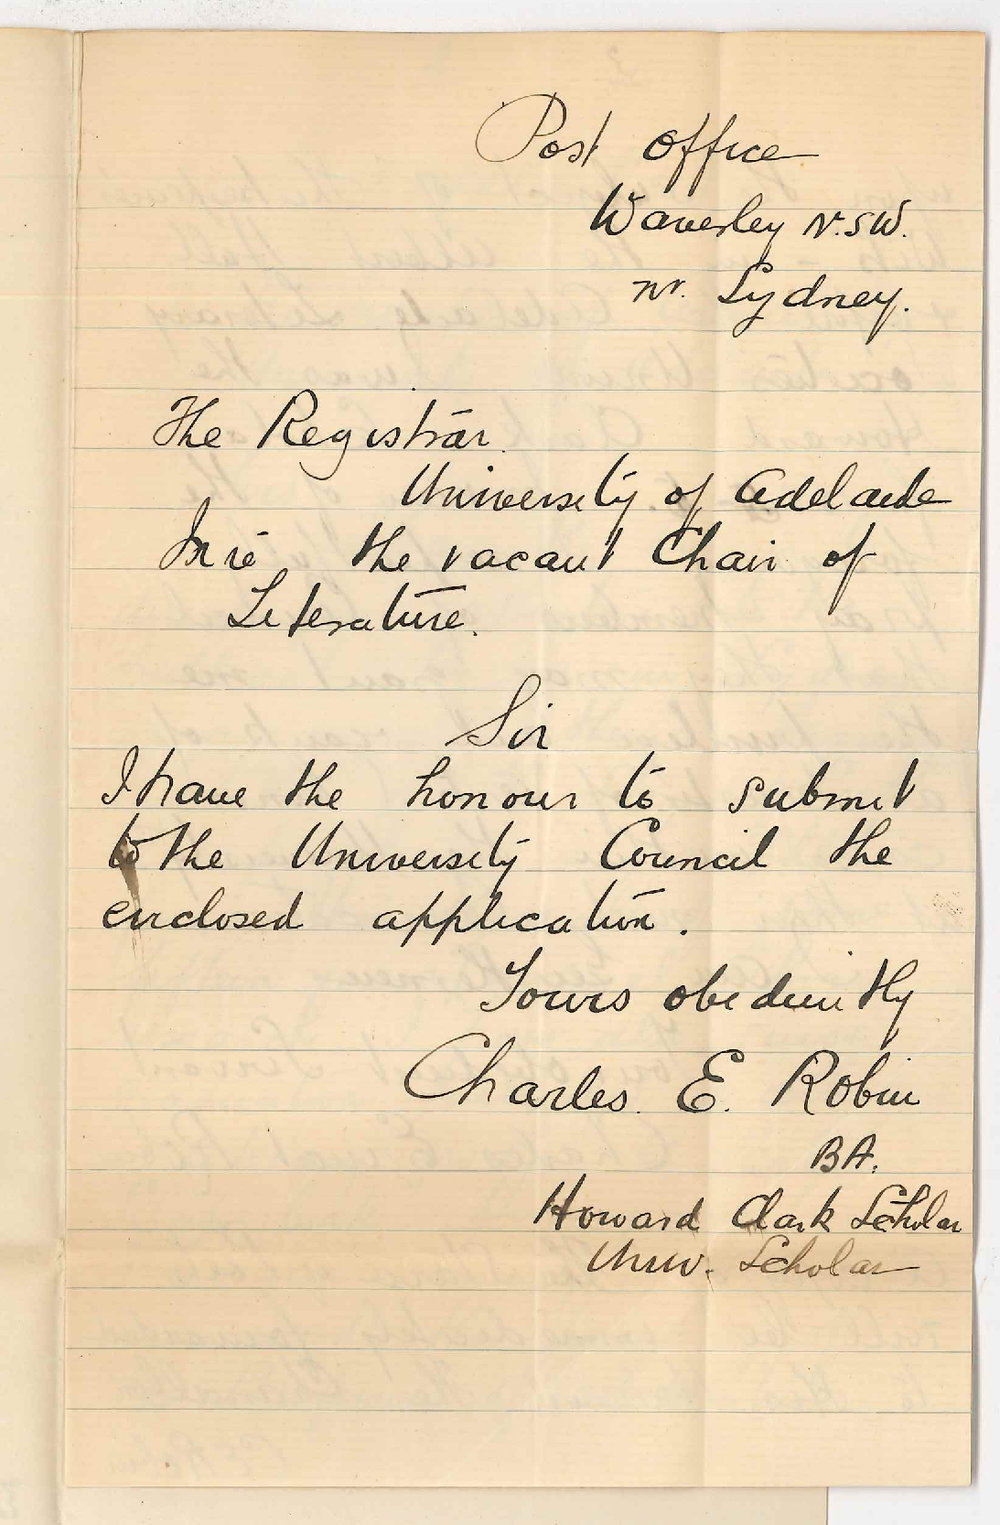 Post Office
Waverley N.S.W.
nr. Sydney.
The Registrar
University of Adelaide
In re the vacant Chair of
Literature.
Sir
I have the honour to submit
to the University Council the
enclosed application.
Yours obediently
Charles E. Robin
BA.
Howard Clark Scholar
Univ. Scholar